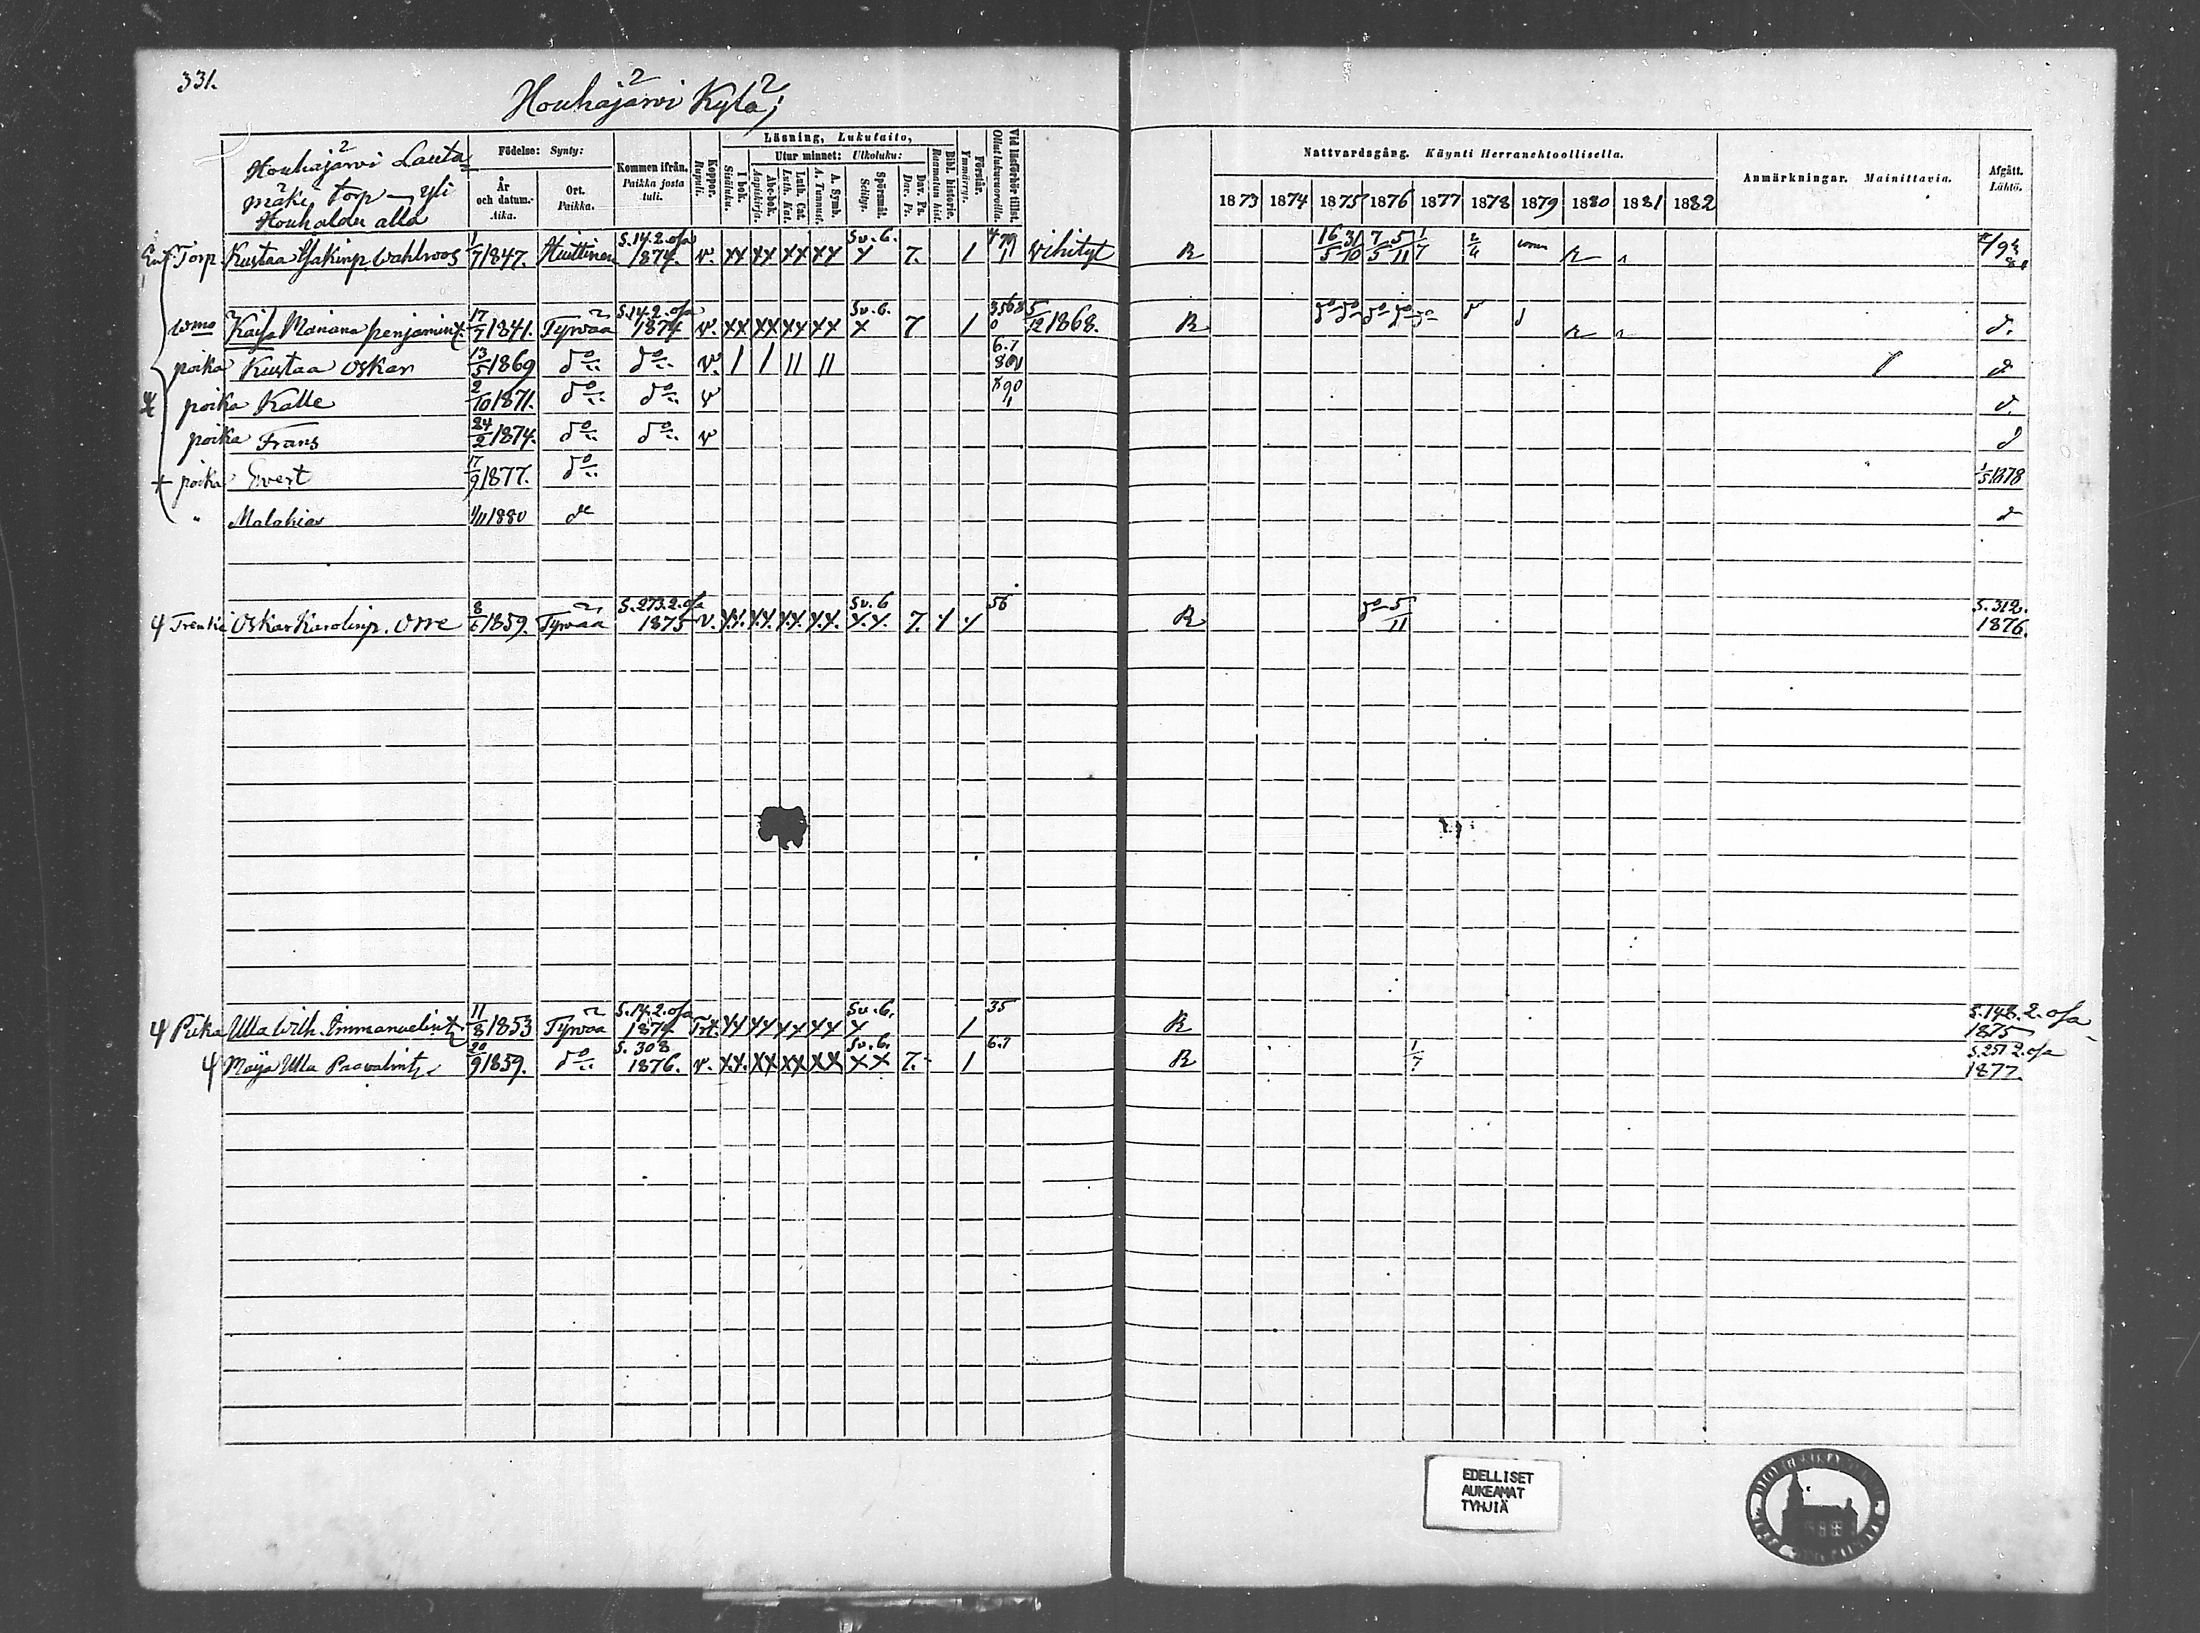 331.
Houhajärvi Kylä;
Houhajärvi Lauta=
mäki torp yli
Houhalan alla
Födelse: Synty:
År och datum. Aika.
Ort. Paikka.
Kommen ifrån. Paikka josta tuli.
Koppor. Rupuli.
Läsning, Lukutaito,
I bok. Sisäluku.
Utur minnet: Ulkoluku:
Abc-bok. Aapiskirja.
Luth. Cat. Luth. Kat.
A. Symb. A. Tunnust.
Spörsmål. Selitys.
Dav. Ps. Dav. Ps.
Bibl. historie. Raamatun hist.
Förstår. Ymmärrys.
Vid läsförhör tillst. Ollut lukuvuoroilla.
Nattvardsgång. Käynti Herranehtoollisella.
1873 1874 1875 1876 1877 1878 1879 1880 1881 1882
Anmärkningar. Mainittavia.
Afgått. Lähtö.
Torp. Kustaa Isakinp. Wahlroos 1/7 1847. Huittinen S.14.2.osa 1874. v. XX XX XX XX Sv.6. X 7. 1 vihityt R 16/5 31/10 7/5 5/11 1/7
wmo Kaisa Mariana penjamint. 17/7 1841. Tyrvää S.14.2.osa 1874 v. XX XX XX XX Sv.6. X 7 1 5/12 1868. R do do do do do
poika Kustaa Oskar 13/5 1869 do do v. / / // // 6.7
poika Kalle 2/10 1871. do do v
poika Frans 24/2 1874. do do v
+ poika Evert 17/9 1877. do 1/5 1878
" Malakias 1/11 1880 do
Trenki Oskar Karolinp. Orre 8/6 1859. Tyrvää S.273.2.osa 1875 v. X.X. X.X. X.X. X.X. Sv.6 X.X. 7. 56 R do 5/11 S.312. 1876.
Piika Ulla Wilh. Immanuelint. 11/8 1853 Tyrvää S.14.2.osa 1874 Trt. XX XX XX XX Sv.6. X 1 35 R S.148.2.osa 1875
Maija Ulla Paavalint. 20/9 1859. do S. 308 1876. v. XX. XX XX XX Sv.6. XX 7. 1 6.7 R 1/7 S.251 2.osa 1877.
EDELLISET
AUKEAMAT
TYHJIÄ